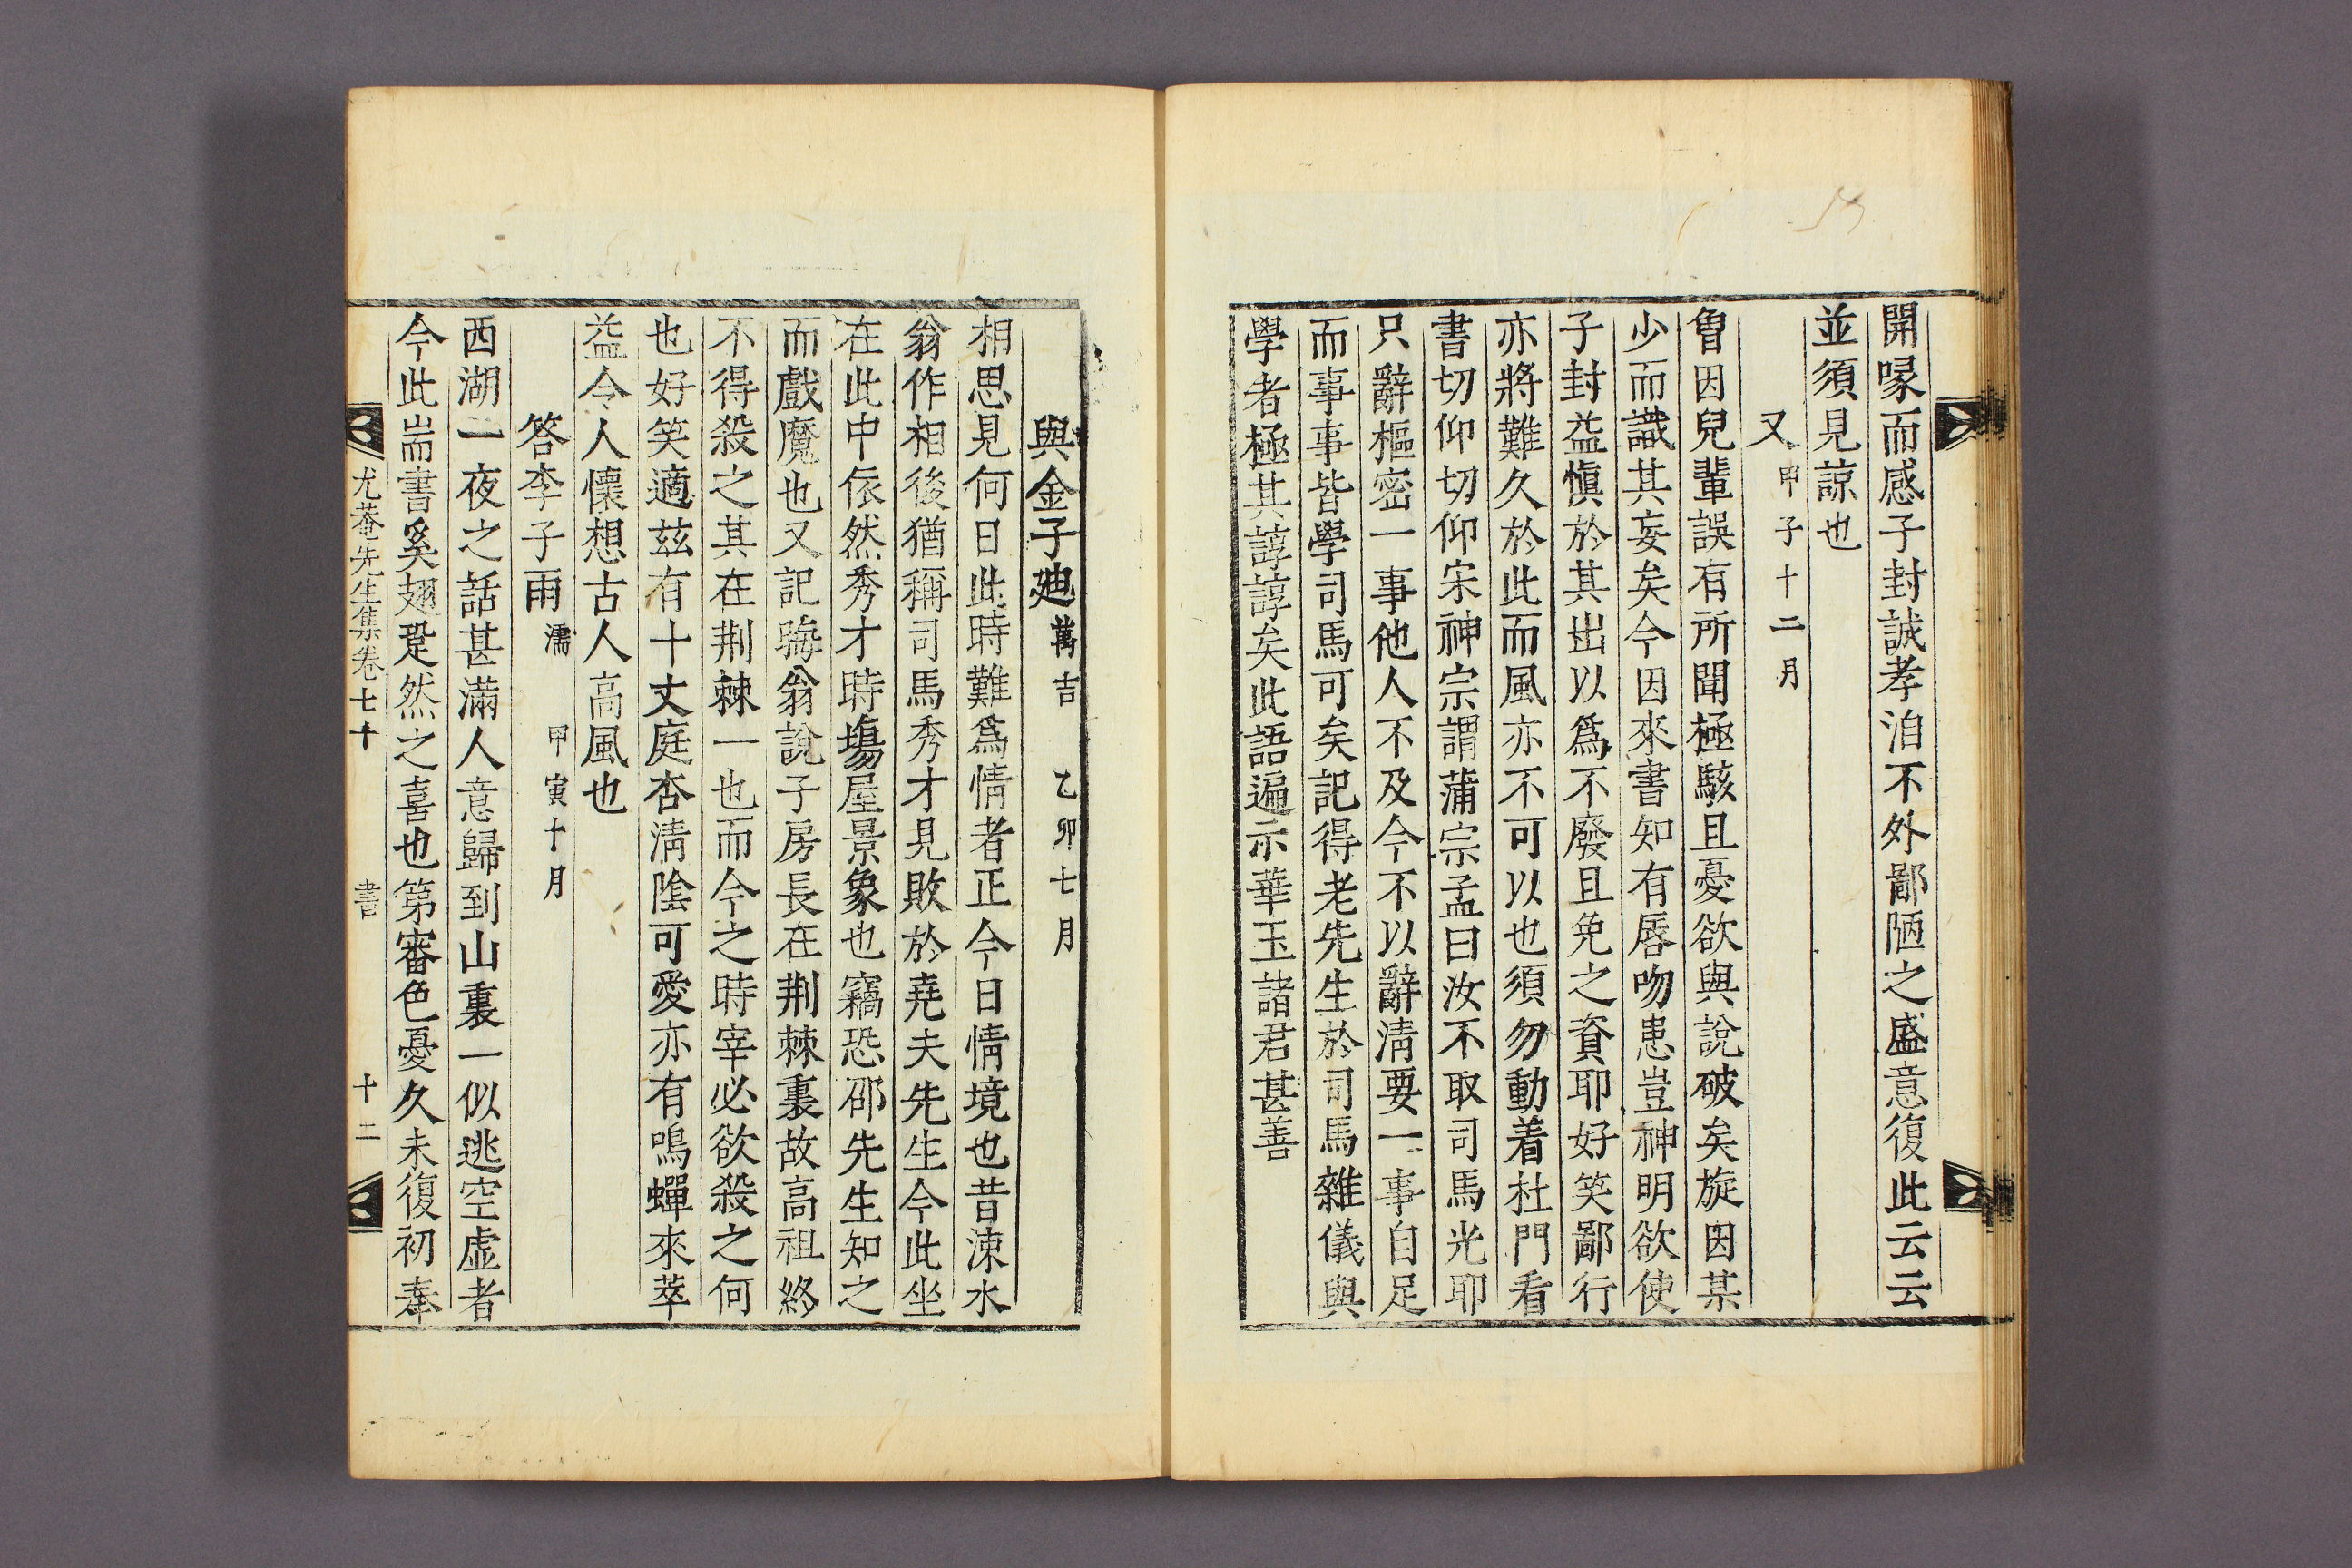 開喙而感子封誠孝洎不外鄙陋之盛意復此云云
並須見諒也
又 甲子十二月
曾因兒輩誤有所聞極駭且憂欲與說破矣旋因某
少而識其妄矣今因來書知有唇吻患豈神明欲使
子封益愼於其出以爲不廢且免之資耶好笑鄙行
亦將難久於此而風亦不可以也須勿動着杜門看
書切仰切仰宋神宗謂蒲宗孟曰汝不取司馬光耶
只辭樞密一事他人不及今不以辭淸要一事自足
而事事皆學司馬可矣記得老先生於司馬雜儀與
學者極其諄諄矣此語遍示華玉諸君甚善
與金子迪 萬吉 乙卯七月
相思見何日此時難爲情者正今日情境也昔涑水
翁作相後猶稱司馬秀才見敗於堯夫先生今此坐
在此中依然秀才時塲屋景象也竊恐邵先生知之
而戲魔也又記晦翁說子房長在荆棘裏故高祖終
不得殺之其在荆棘一也而今之時宰必欲殺之何
也好笑適玆有十丈庭杏淸陰可愛亦有鳴蟬來萃
益令人懷想古人高風也
答李子雨 濡 甲寅十月
西湖一夜之話甚滿人意歸到山裏一似逃空虛者
今此耑書奚翅跫然之喜也第審色憂久未復初奉
尤菴先生集卷七十 書 十二